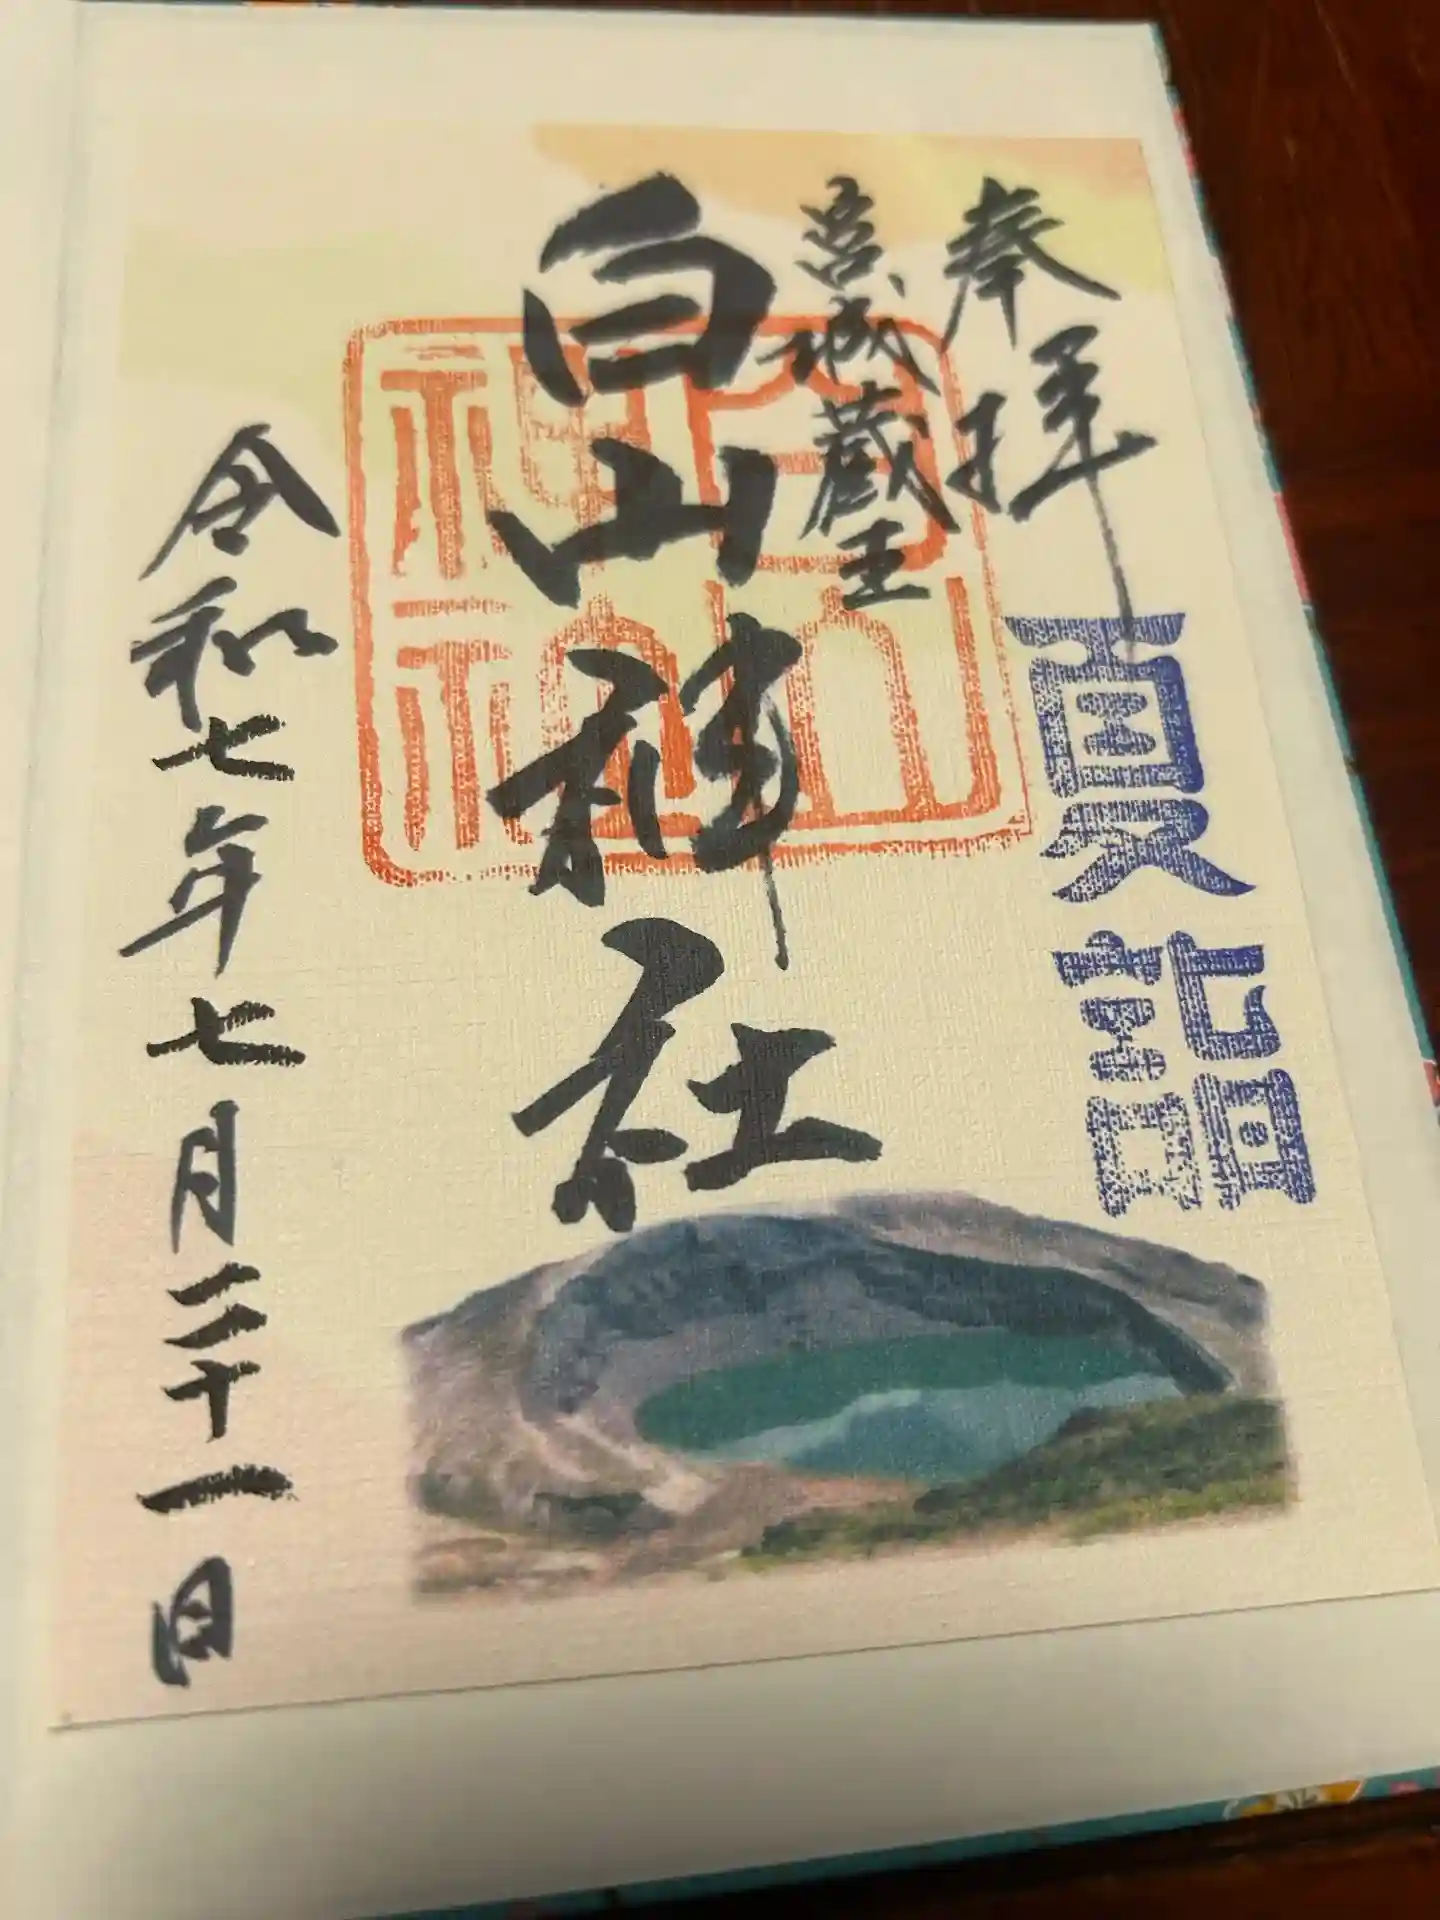 奉拝
夏詣
宮城蔵王
白山神社
白山
神社
令和七年七月二十一日